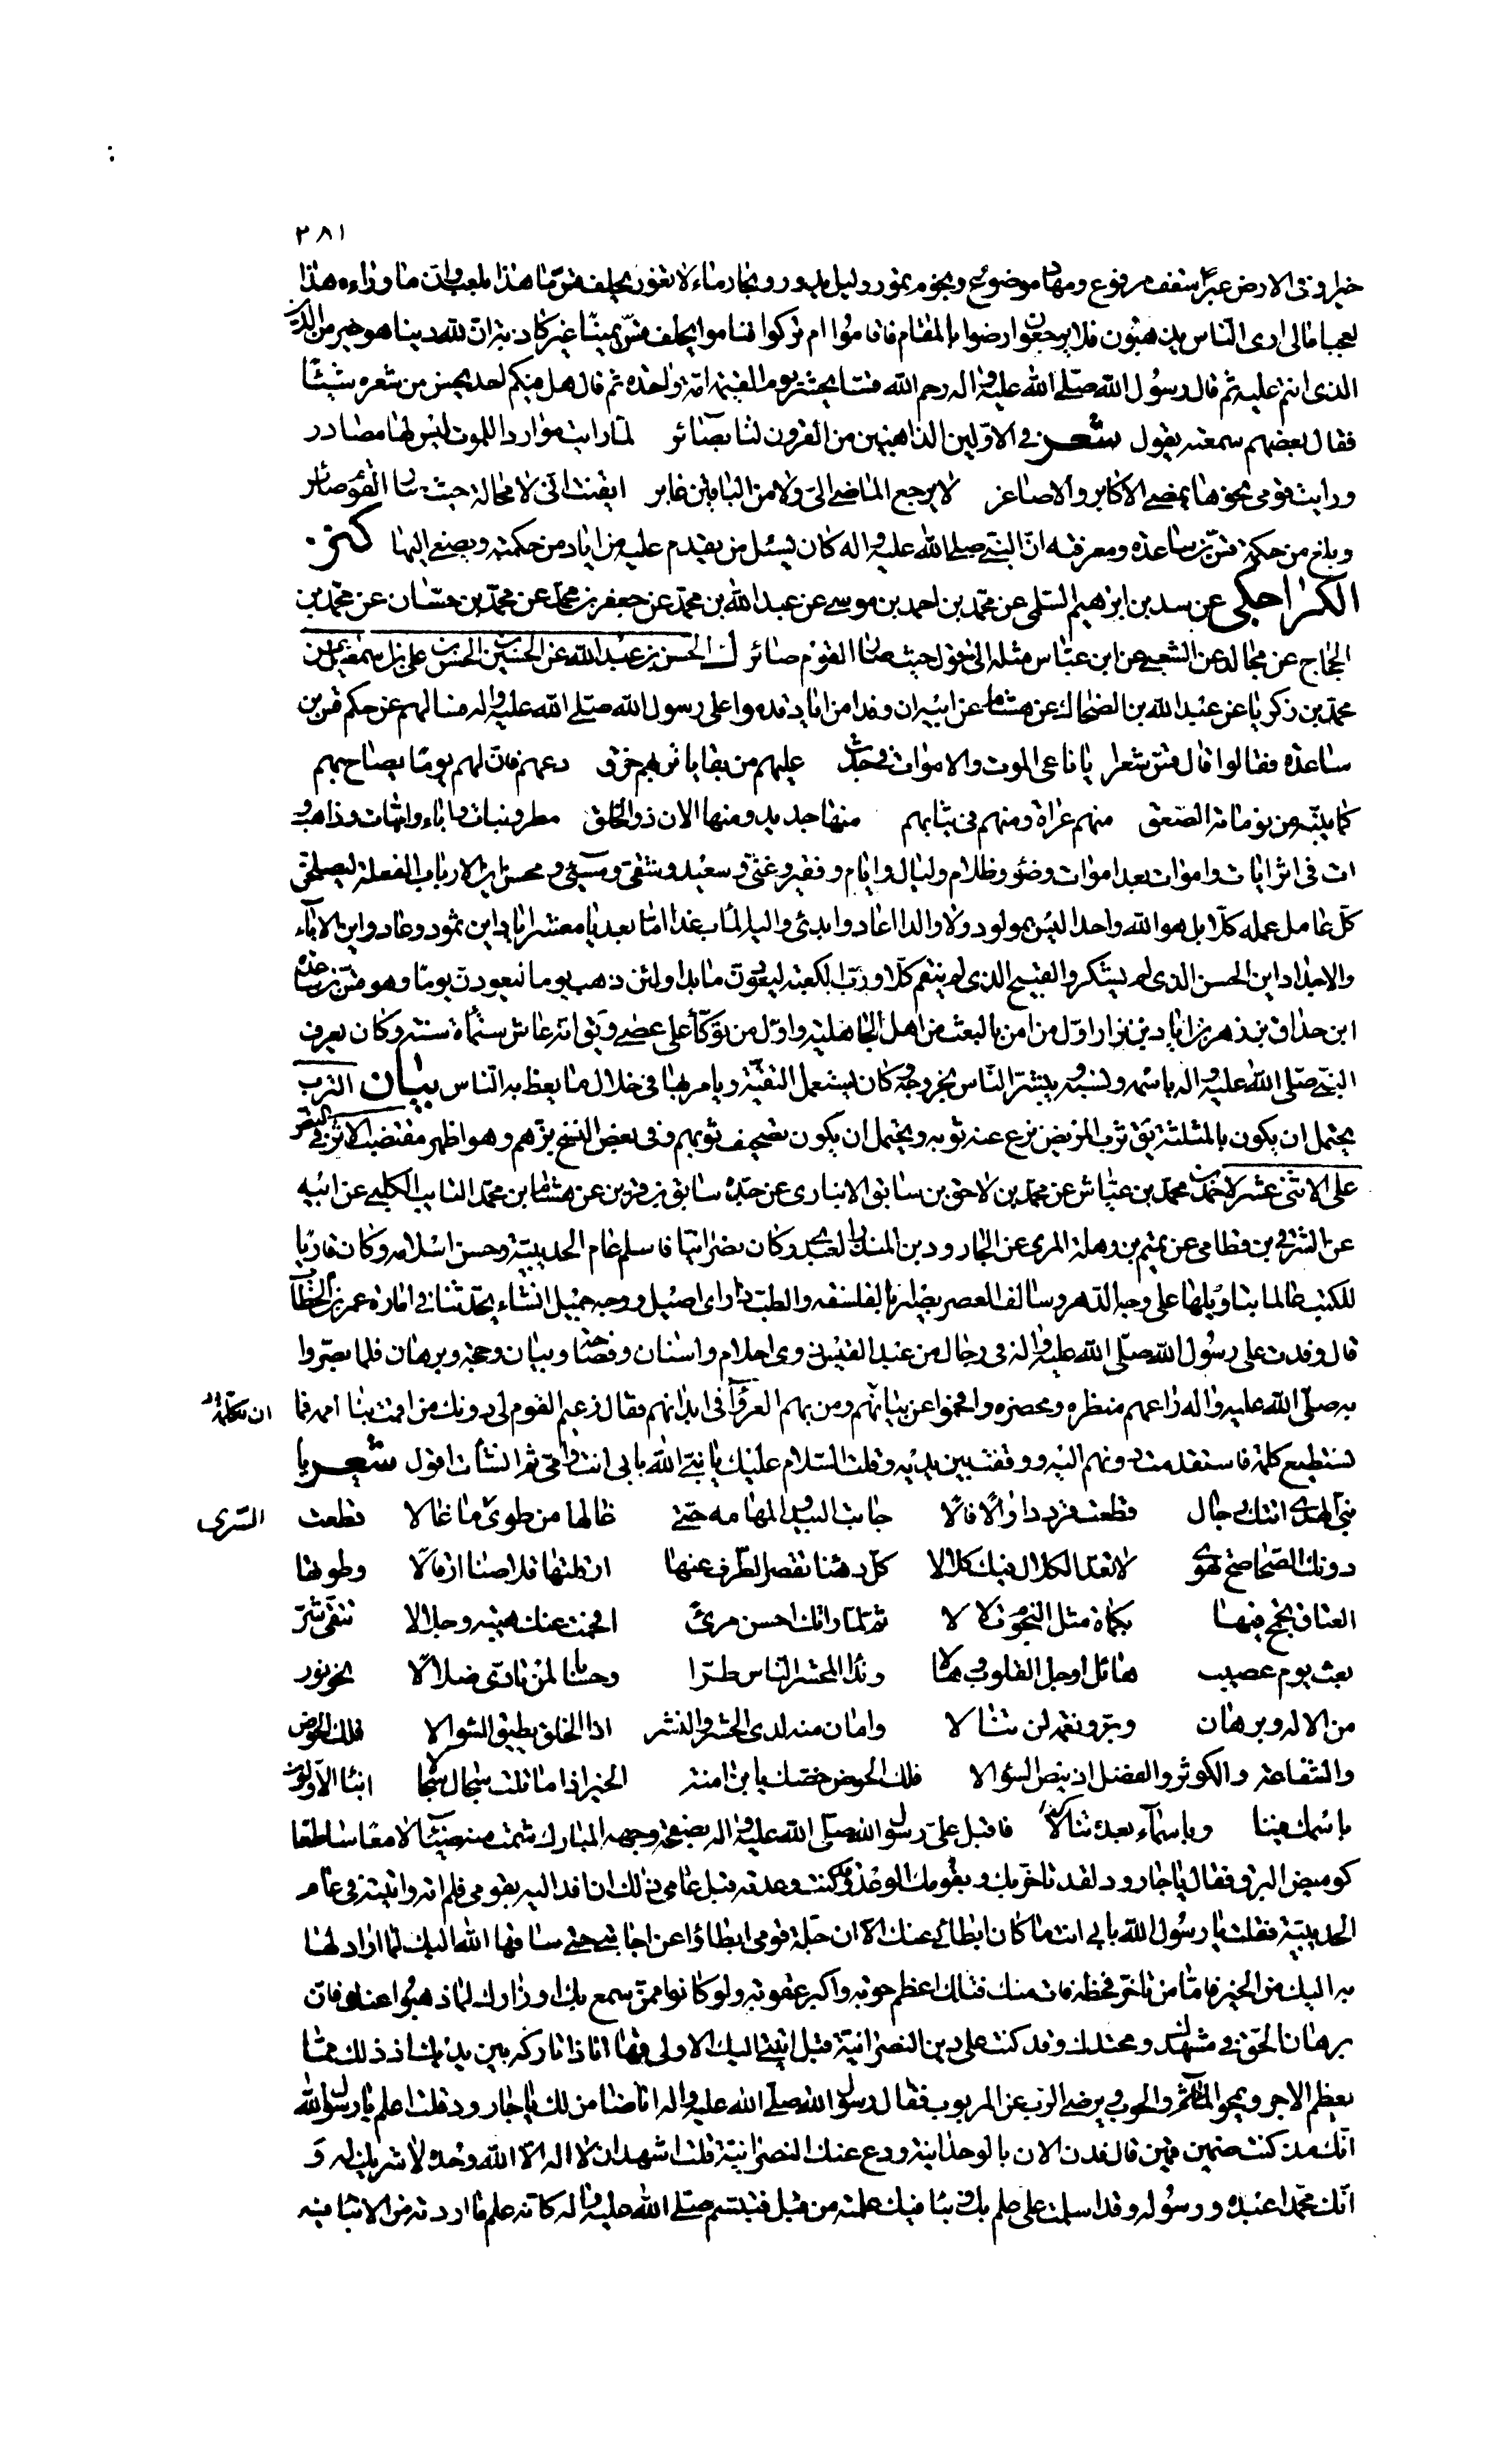 ٣٨١
خبرا وفى الارض عبرا سقف مرفوع ومهاد موضوع ونجوم تمور وليل يدور وبحار ماء لا تغور يحلف قسّ ما هذا بلعب وانّ من وراء هذا
لعجبا مالى ارى النّاس يذهبون فلا يرجعون ارضوا بالمقام فاقاموا ام تركوا فناموا يحلف قسّ يمينا غير كاذبة انّ لله دينا هو خير من الدين
الذى انتم عليه ثم قال رسول الله صلّى الله عليه واله رحم الله قسّا يحشر يوم القيمة امّة واحدة ثم قال هل فيكم احد يحسن من شعره شيئا
فقال بعضهم سمعته يقول شعر فى الاوّلين الذاهبين من القرون لنا بصائر لمّا رايت مواردا للموت ليس لها مصادر
ورايت قومى نحوها يمضى الاكابر والاصاغر لا يرجع الماضى الىّ ولا من الباقين غابر ايقنت انّى لا محالة حيث صار القوم صائر
وبلغ من حكمة قسّ بن ساعدة ومعرفته انّ النبىّ صلى الله عليه واله كان يسئل من يقدم عليه من اياد من حكمته ويصغى اليها كنز
الكراجكى عن اسد بن ابرهيم السلمى عن محمّد بن احمد بن موسى عن عبد الله بن محمّد عن جعفر بن محمّد عن محمّد بن حسّان عن محمد بن
الحجاج عن مجالد عن الشعبى عن ابن عبّاس مثله الى قوله حيث صار القوم صائر ك الحسن بن عبد الله عن الحسين بن الحسن عن على بن اسمعيل عن
محمّد بن زكريا عن عبد الله بن الضحّاك عن هشام عن ابيه ان وفدا من اياد قدموا على رسول الله صلّى الله عليه واله فسالهم عن حكم قسّ بن
ساعدة فقالوا قال قسّ شعر يا ناعى الموت والاموات فى جدث عليهم من بقايا ثربهم خرق دعهم فانّ لهم يوما يصاح بهم
كما ينبّه من نوماته الصعق منهم عراة ومنهم فى ثيابهم منها جديد ومنها الان ذو الخلق مطر ونبات واباء وامّهات وذاهب و
ات فى اثر ايات واموات بعد اموات وضوء وظلام وليال وايام وفقير وغنىّ وسعيد وشقى ومسيئ ومحسن اين الارباب الفعلة ليصلحنّ
كلّ عامل عمله كلّا بل هو الله واحد ليس بمولود ولا والد اعاد وابدئ واليه المآب غدا امّا بعد يا معشر اياد اين ثمود وعاد واين الاباء
والاجداد اين الحسن الذى لم يشكر والقبيح الذى لم ينقم كلّا وربّ الكعبة ليعودنّ ما بدا ولئن ذهب يوما ليعودن يوما وهو قسّ بن ساعدة
ابن حذاق بن زهر بن اياد بن نزار اوّل من امن بالبعث من اهل الجاهلية واوّل من توكّأ على عصى ويق انه عاش ستّماة سنة وكان يعرف
النبىّ صلى الله عليه واله باسمه ونسبه ويبشّر النّاس بخروجه وكان يستعمل التقيّة ويامر بها فى خلال ما يعظ به النّاس بيان الثرب
يحتمل ان يكون بالمثلثة يق ثرب المريض نزع عنه ثوبه ويحتمل ان يكون تصحيف ثوبهم وفى بعض النسخ بزّهم وهو اظهر مقتضب الاثر فى النصّ
على الاثنى عشر لاحمد بن محمد بن عيّاش عن محمّد بن لاحق بن سابق الانبارى عن جدّه سابق بن قرين عن هشام بن محمّد السايب الكلبى عن ابيه
عن الشرقى بن قطامى عن تميم بن وهلة المرى عن الجارود بن المنذر العبدى وكان نصرانيا فاسلم عام الحديبية وحسن اسلامه وكان قاريا
للكتب عالما بتاويلها على وجه الدّهر وسالف العصر بصيرا بالفلسفة والطب ذا راى اصيل ووجه جميل انشاء يحدثنا فى امارة عمر بن الخطّاب
قال وفدت على رسول الله صلّى الله عليه واله فى رجال من عبد القيس ذوى احلام واسنان وفصاحة وبيان وحجّة وبرهان فلما بصروا
به صلّى الله عليه واله راعهم منظره ومحضره وافحموا عن بيانهم ومن بهم العرواء فى ابدانهم فقال زعيم القوم لى دونك من اممت بنا اممه فما
ان نكلّمه
نستطيع كلمة فاستقدمت دونهم اليه ووقفت بين يديه وقلت السّلام عليك يا نبىّ الله بابى انت وامى ثم انشات اقول شعر يا
نبىّ الهدى اتتك رجال قطعت فدفدا والا فالا جابت البيد والمهامه حتّى غالها من طوى ما غالا قطعت
السّرى
دونك الصّحاصح تهوى لا تعدّ الكلال فيك كلالا كلّ دهناء تقصر الطّرف عنها ارقلتها قلاصنا ارقالا وطوتها
العتاق تجمح فيها بكماة مثل النجوم تلالا ثم لمّا راتك احسن مرئ افحمت عنك هيبة وجلالا تتّقى شرّ
بعث يوم عصيب هائل اوجل القلوب وهالا ونداء المحشر النّاس طرّا وحسابا لمن تمادى ضلالا نحو نور
من الاله وبرهان وبرّ ونعمة لن تنالا وامان منه لدى الحشر والنشر اذ الخلق لا يطيق السّؤالا فلك الحوض
والشفاعة والكوثر والفضل اذ ينصّ السؤالا فلك الحوض خصّك يابن امنة الخير اذا ما تلت سجال سجالا انبا الاوّلون
باسمك فينا وباسماء بعده تتلالا فاقبل علىّ رسول الله صلّى الله عليه واله بصفحة وجهه المبارك شمت منه ضياء لامعا ساطعا
كوميض البرق فقال يا جارود لقد تاخّر بك وبقومك الموعد وقد كنت وعدته قبل عامى ذلك ان افد اليه بقومى فلم اته واتيته فى عام
الحديبية فقلت يا رسول الله بابى انت ما كان ابطائى عنك الّا ان جلّة قومى ابطاؤا عن اجابتى حتى ساقها الله اليك لما اراد لها
به اليك من الخير فامّا من تاخّر فحظّه فات منك فتلك اعظم حوبة واكبر عقوبة ولو كانوا ممن سمع بك او راك لما ذهبوا عنك فان
برهان الحق فى مشهدك ومحتدك وقد كنت على دين النصرانية قبل اتيتى اليك الاولى فها انا ذا تاركه بين يديك اذ ذلك ممّا
يعظم الاجر ويمحو المآثم والحوب ويرضى الرّب عن المربوب فقال رسول الله صلّى الله عليه واله انا ضامن لك يا جارود قلت اعلم يا رسول الله
انّك مذ كنت ضمين قمين قال فدن الان بالوحدانية ودع عنك النصرانيّة قلت اشهد ان لا اله الّا الله وحده لا شريك له و
انّك محمّدا عبده ورسوله وقد اسلمت على علم بك ونبا فيك علمته من قبل فتبسّم صلّى الله عليه واله كانّه علم ما اردته من الانباء فيه